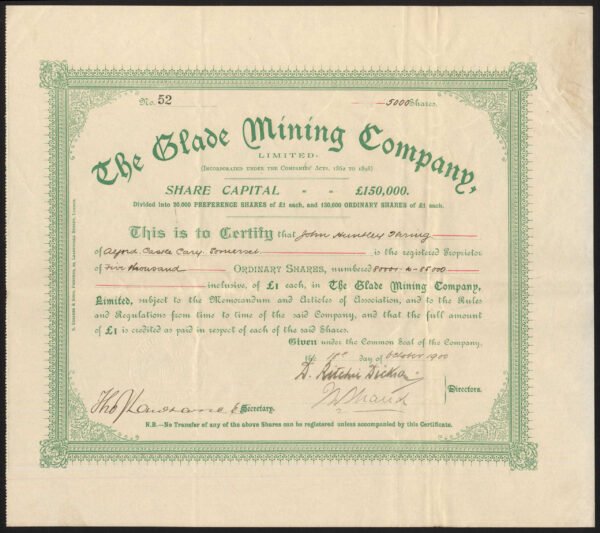 No. 52
5000 Shares.
The Glade Mining Company,
LIMITED.
(INCORPORATED UNDER THE COMPANIES' ACTS, 1862 TO 1898)
SHARE CAPITAL " " £150,000.
Divided into 20,000 PREFERENCE SHARES of £1 each, and 130,000 ORDINARY SHARES of £1 each.
This is to Certify that John Huntley Thring
of Alford, Castle Cary, Somerset is the registered Proprietor
of Five thousand ORDINARY SHARES, numbered 80001 to 85000
inclusive, of £1 each, in The Glade Mining Company,
Limited, subject to the Memorandum and Articles of Association, and to the Rules
and Regulations from time to time of the said Company, and that the full amount
of £1 is credited as paid in respect of each of the said Shares.
Given under the Common Seal of the Company,
day of October 1900
D. Ritchie
Directors.
Secretary.
N.B.—No Transfer of any of the above Shares can be registered unless accompanied by this Certificate.